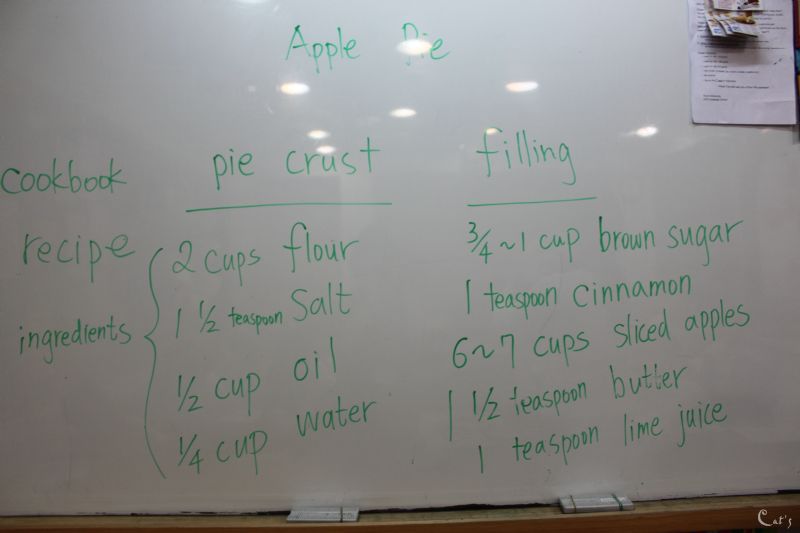 Apple Pie
cookbook
recipe
ingredients
pie crust
2 cups flour
1 1/2 teaspoon Salt
1/2 cup oil
1/4 cup water
filling
3/4 ~ 1 cup brown sugar
1 teaspoon cinnamon
6~7 cups sliced apples
1 1/2 teaspoon butter
1 teaspoon lime juice
Cat's